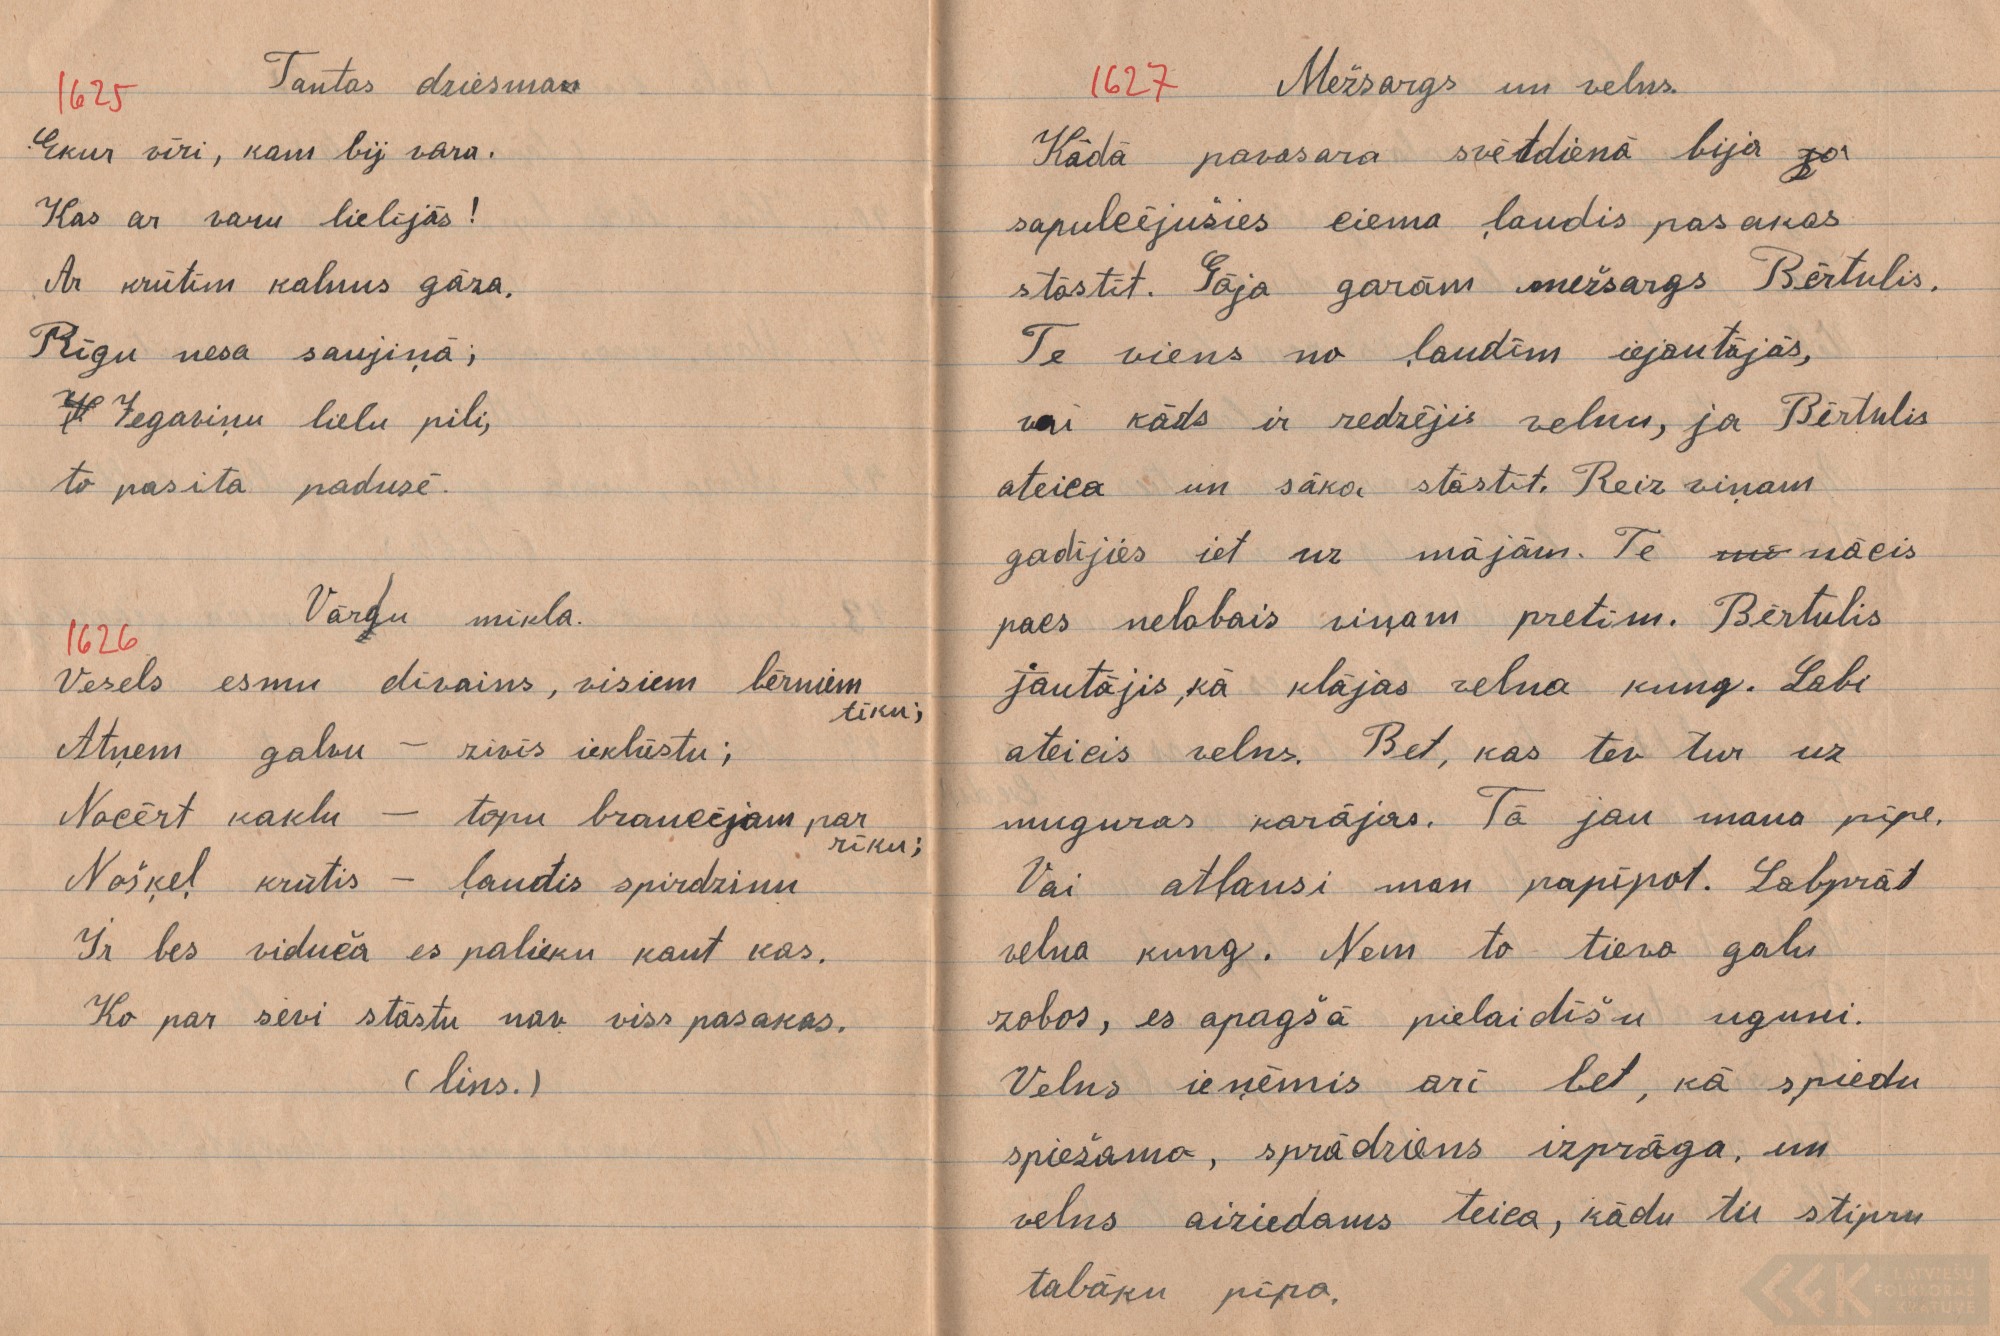 1625 Tautas dziesma
Ekur vīri, kam bij vara.
Kas ar varu lielījās!
Ar krūtīm kalnus gāza,
Rīgu nesa saujiņā;
Jegaviņu lielu pili,
to pasita padusē.
1626 Vārdu mīkla.
Vesels esmu dīvains, visiem bērniem
tīku;
Atņem galvu – zivīs iekļūstu;
Nocērt kaklu – topu braucējam par
rīku;
Nošķeļ krūtis – ļaudis spirdzinu
Ir bes viduča es palieku kaut kas.
Ko par sevi stāstu nav viss pasakas.
(lins.)
1627 Mežsargs un velns.
Kādā pavasara svētdienā bija
sapulcējušies ciema ļaudis pasakas
stāstīt. Gāja garām mežsargs Bērtulis.
Te viens no ļaudīm iejautājās,
vai kāds ir redzējis velnu, ja Bērtulis
ateica un sāka stāstīt. Reiz viņam
gadījies iet uz mājām. Te nācis
paes nelabais viņam pretīm. Bērtulis
jautājis, kā klājas velna kung. Labi
ateicis velns. Bet, kas tev tur uz
muguras karājas. Tā jau mana pīpe.
Vai atļausi man papīpot. Labprāt
velna kung. Nem to tievo galu
zobos, es apagšā pielaidīšu uguni.
Velns ieņēmis arī bet, kā spiedu
spiežamo, sprādziens izprāga, un
velns aiziedams teica, kādu tu stipru
tabāku pīpo.
LATVIEŠU
FOLKLORAS
KRĀTUVE